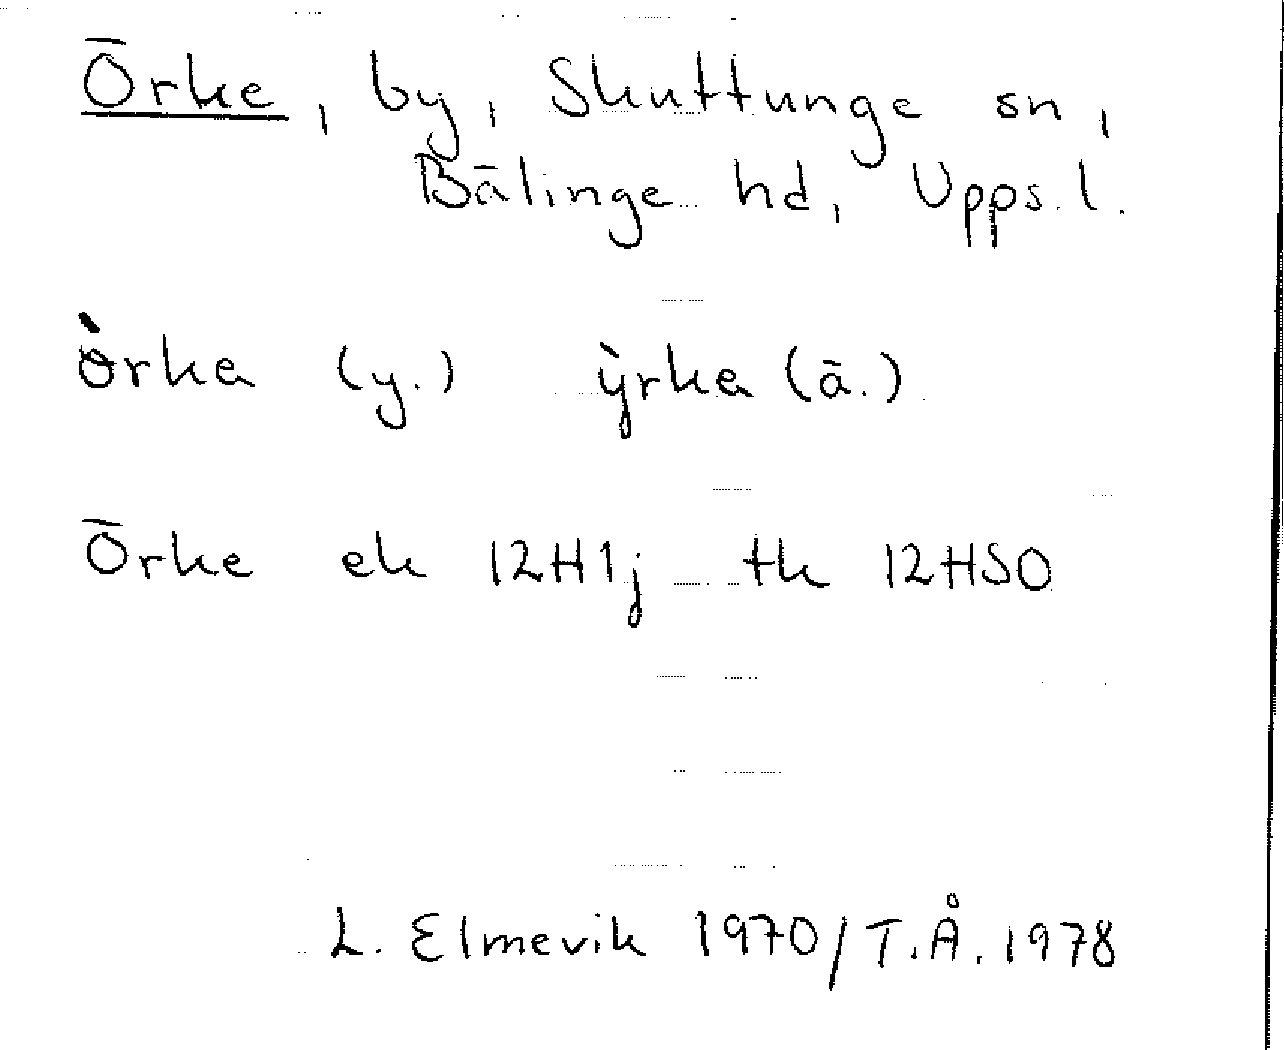 Örke, by, Skuttunge sn,
Bälinge hd, Upps. l.
ö̀rka (y.) ỳrka (ä.)
Örke ek 12H1j tk 12HSO
L. Elmevik 1970/T.Å. 1978